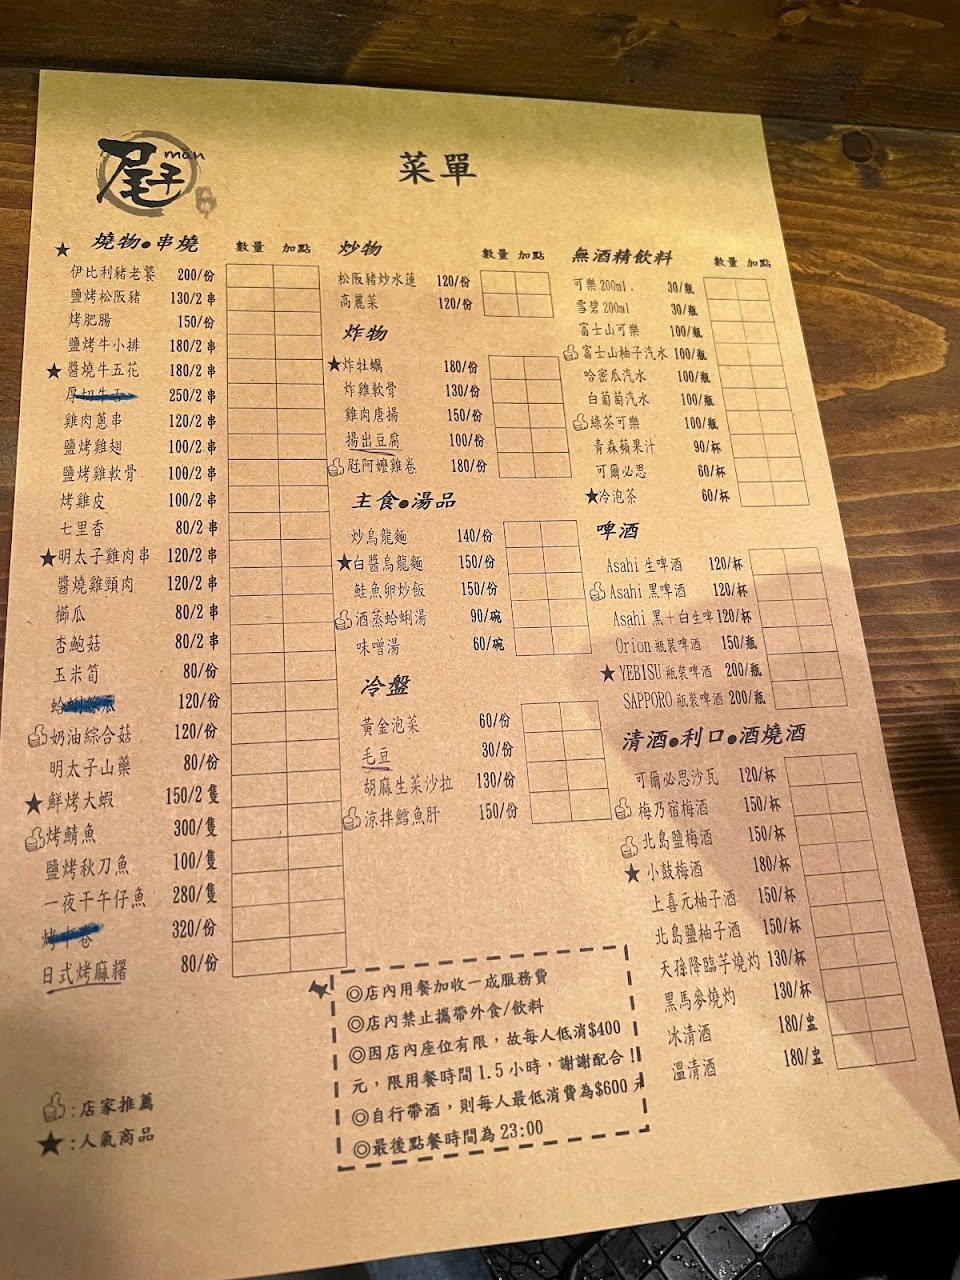 尾子 man
菜單
★ 燒物●串燒 數量 加點
伊比利豬老饕 200/份
鹽烤松阪豬 130/2 串
烤肥腸 150/份
鹽烤牛小排 180/2 串
★醬燒牛五花 180/2 串
厚切牛舌 250/2 串
雞肉蔥串 120/2 串
鹽烤雞翅 100/2 串
鹽烤雞軟骨 100/2 串
烤雞皮 100/2 串
七里香 80/2 串
★明太子雞肉串 120/2 串
醬燒雞頸肉 120/2 串
櫛瓜 80/2 串
杏鮑菇 80/2 串
玉米筍 80/份
蛤蜊絲瓜 120/份
奶油綜合菇 120/份
明太子山藥 80/份
★鮮烤大蝦 150/2 隻
烤鯖魚 300/隻
鹽烤秋刀魚 100/隻
一夜干午仔魚 280/隻
320/份
日式烤麻糬 80/份
:店家推薦
★:人氣商品
炒物 數量 加點
松阪豬炒水蓮 120/份
高麗菜 120/份
炸物
★炸牡蠣 180/份
炸雞軟骨 130/份
雞肉唐揚 150/份
揚出豆腐 100/份
尾阿嬤雞卷 180/份
主食●湯品
炒烏龍麵 140/份
★白醬烏龍麵 150/份
鮭魚卵炒飯 150/份
酒蒸蛤蜊湯 90/碗
味噌湯 60/碗
冷盤
黃金泡菜 60/份
毛豆 30/份
胡麻生菜沙拉 130/份
涼拌鱈魚肝 150/份
◎店內用餐加收一成服務費
◎店內禁止攜帶外食/飲料
◎因店內座位有限，故每人低消$400
元，限用餐時間 1.5 小時，謝謝配合！！
◎自行帶酒，則每人最低消費為$600 元
◎最後點餐時間為 23:00
無酒精飲料 數量 加點
可樂 200ml. 30/瓶
雪碧 200ml 30/瓶
富士山可樂 100/瓶
富士山柚子汽水 100/瓶
哈密瓜汽水 100/瓶
白葡萄汽水 100/瓶
綠茶可樂 100/瓶
青森蘋果汁 90/杯
可爾必思 60/杯
★冷泡茶 60/杯
啤酒
Asahi 生啤酒 120/杯
Asahi 黑啤酒 120/杯
Asahi 黑＋白生啤 120/杯
Orion 瓶裝啤酒 150/瓶
★ YEBISU 瓶裝啤酒 200/瓶
SAPPORO 瓶裝啤酒 200/瓶
清酒●利口●酒燒酒
可爾必思沙瓦 120/杯
梅乃宿梅酒 150/杯
北島鹽梅酒 150/杯
★ 小鼓梅酒 180/杯
上喜元柚子酒 150/杯
北島鹽柚子酒 150/杯
天孫降臨芋燒灼 130/杯
黑馬麥燒灼 130/杯
冰清酒 180/盅
溫清酒 180/盅